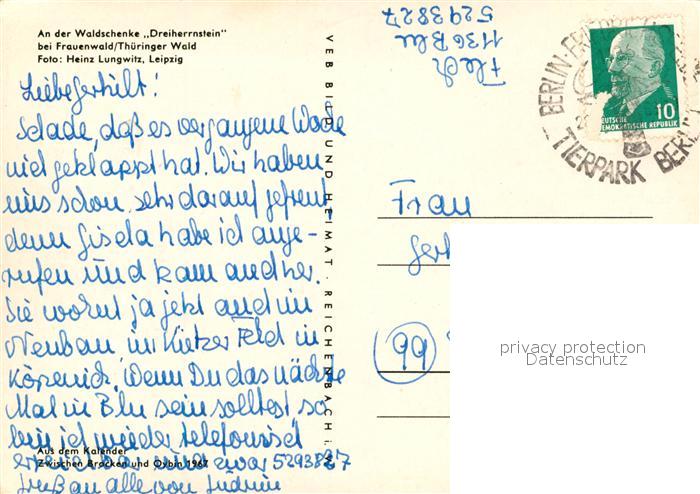 An der Waldschenke „Dreiherrnstein"
bei Frauenwald/Thüringer Wald
Foto: Heinz Lungwitz, Leipzig
Liebe Gerhilt!
Schade, daß es vergangene Woche
nict geklappt hat. Wir haben
uns schon sehr darauf gefreut,
denn Gisela habe ich ange-
rufen und kam auch her.
Sie wohnt ja jetzt auch im
Neubau im Kietzer Feld in
Köpenick. Wenn Du das nächste
Mal in Bln sein solltest so
bin ich wieder telefonisch
und zwar 5293827
Gruß an alle von
Aus dem Kalender
Zwischen Brocken und Oybin 1967
VEB BILD UND HEIMAT · REICHENBACH i. V.
1136 Bln
5293827
BERLIN-
TIERPARK BERLIN
10
DEUTSCHE
DEMOKRATISCHE REPUBLIK
Frau
99
privacy protection
Datenschutz